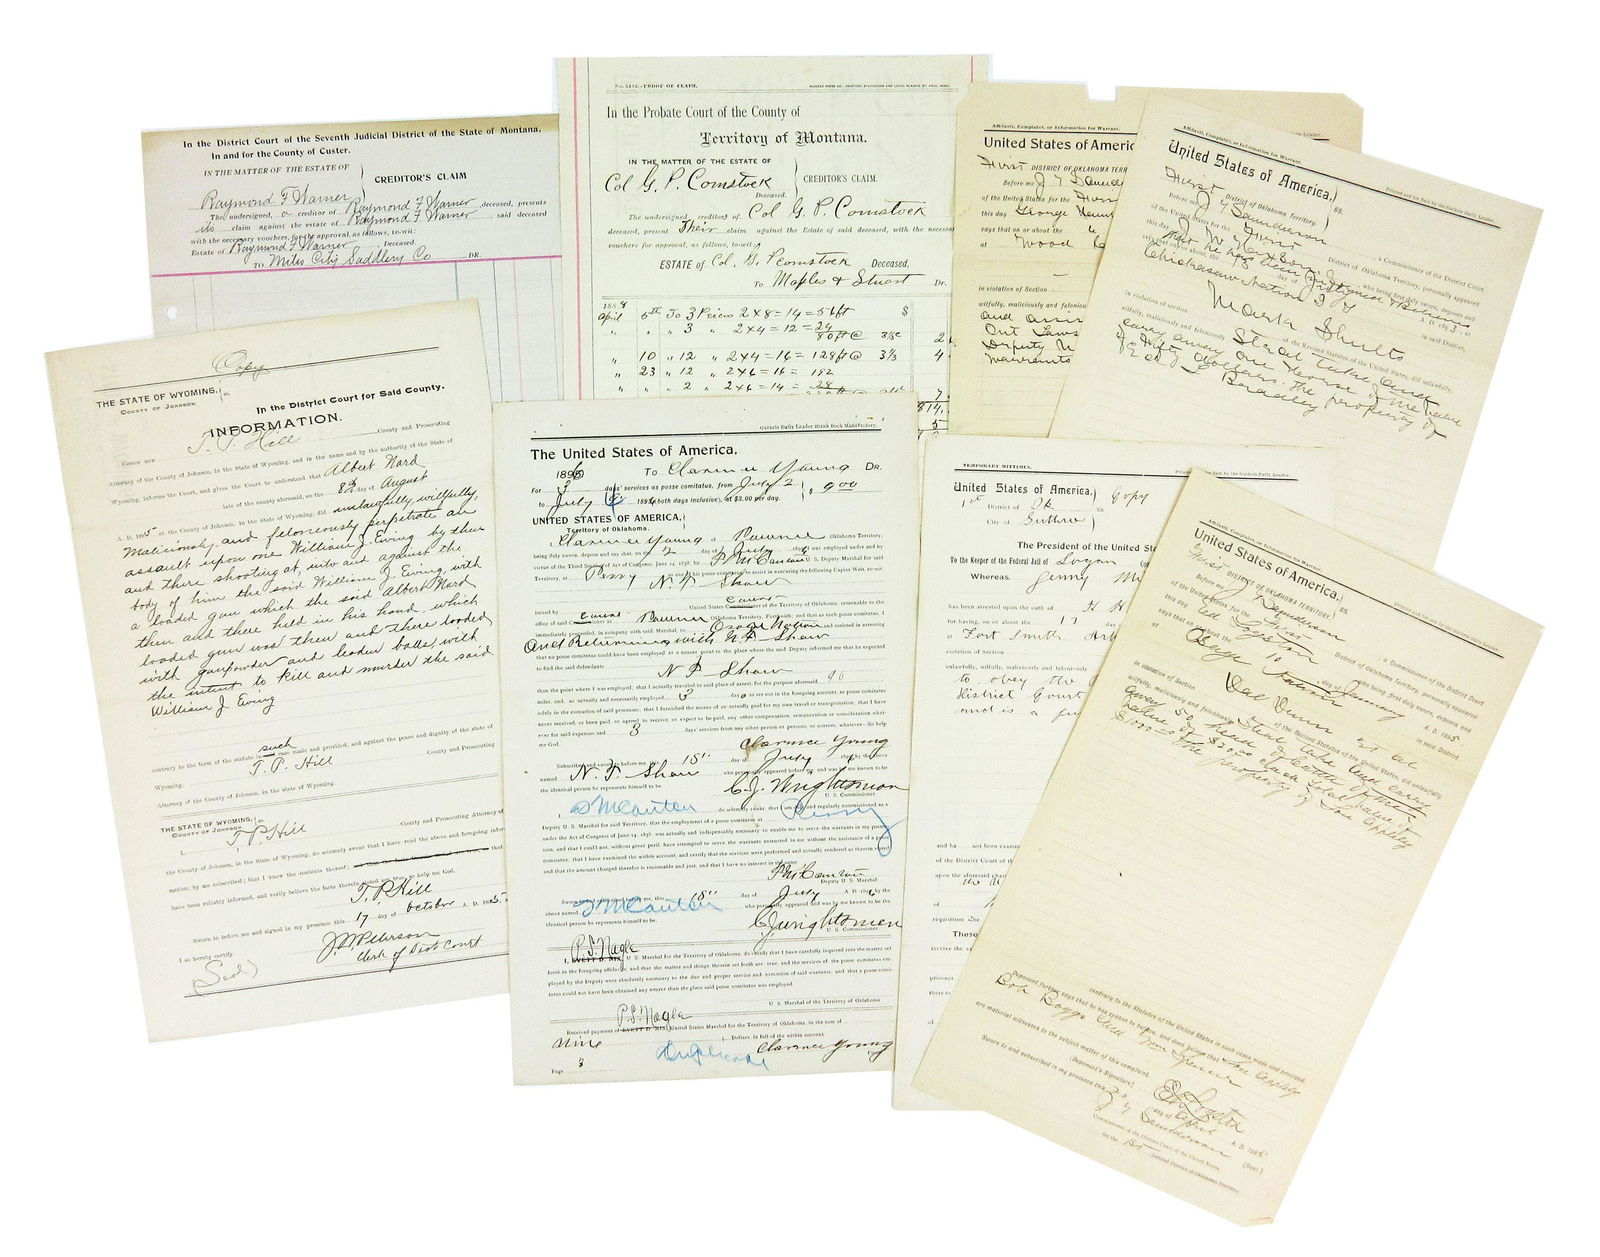 In the District Court of the Seventh Judicial District of the State of Montana.
In and for the County of Custer.
IN THE MATTER OF THE ESTATE OF
Raymond F Warner
CREDITOR'S CLAIM
The undersigned, a creditor of Raymond F Warner, deceased, presents
his claim against the estate of Raymond F Warner, said deceased
with the necessary vouchers, for the approval, as follows, to-wit:
Estate of Raymond F Warner Deceased.
TO Miles City Saddlery Co DR.
No. 3412.-PROOF OF CLAIM.
In the Probate Court of the County of
Territory of Montana.
IN THE MATTER OF THE ESTATE OF
Col G. P. Comstock
Deceased.
CREDITOR'S CLAIM.
The undersigned creditors of Col G. P. Comstock
deceased, present Their claim against the Estate of said deceased, with the necessary
vouchers for approval, as follows, to-wit:
ESTATE OF Col. G. P Comstock Deceased.
To Maples & Stuart Dr.
1888
April 5th To 3 Peices 2 x 8 = 14 = 56ft $
" " " 3 " 2x4 = 12 = 24
80ft @
" 10 " 12 " 2x4 = 16 = 128ft @ 3½ 4
" 23 " 12 " 2x6 = 16 = 192
" " " 2 " 2x6 = 14 = 28
Affidavit, Complaint, or Information for Warrant.
United States of Americ
First DISTRICT OF OKLAHOMA TERR
Before me J Y Saund
of the United States for the First
this day George
says that on or about the
at Wood
in violation of Section
wilfully, maliciously and feloniou
and
Out Laws
Deputy U
warrants
Affidavit, Complaint, or Information for Warrant.
United States of America,
SS.
First District of Oklahoma Territory.
Before me J Y Saunderson, a Commissioner of the District Court
of the United States for the First District of Oklahoma Territory, personally appeared
this day
that he has been
A. D. 1893
Chickasaw Nation I Y in said District,
in violation of section
Mark Shults
of the Revised Statutes of the United States, did unlawfully,
wilfully, maliciously, and feloniously Steal take and
carry away one Horse of the value
of fifty dollars. the property of
Ed L Bradley
Copy
THE STATE OF WYOMING,
COUNTY OF JOHNSON,
ss.
In the District Court for Said County.
INFORMATION.
Comes now T. P. Hill County and Prosecuting
Attorney of the County of Johnson, in the State of Wyoming, and in the name and by the authority of the State of
Wyoming, informs the Court, and gives the Court to understand that Albert Nard
late of the county aforesaid, on the 8th day of August
A. D. 1895 at the County of Johnson, in the State of Wyoming, did unlawfully, willfully,
maliciously and feloneously perpetrate an
assault upon one William J. Ewing by then
and there shooting at, into and against the
body of him the said William J Ewing, with
a loaded gun which the said Albert Nard
then and there held in his hand, which
loaded gun was then and there loaded
with gunpowder and leaden balls, with
the intent to kill and murder the said
William J Ewing
contrary to the form of the statute in such case made and provided, and against the peace and dignity of the state of
Wyoming.
T. P. Hill County and Prosecuting
Attorney of the County of Johnson, in the state of Wyoming.
THE STATE OF WYOMING,
COUNTY OF JOHNSON
ss.
I, T. P. Hill County and Prosecuting Attorney of
the County of Johnson, in the State of Wyoming, do solemnly swear that I have read the above and foregoing infor-
mation, by me subscribed; that I know the contents thereof; that
have been reliably informed, and verily believe the facts therein stated are true, so help me God.
T. P. Hill
Sworn to before me and signed in my presence this 17 day of October A. D. 1895
I so hereby certify.
J. M. Peterson
Clerk of Dist Court
Seal
Guthrie Daily Leader Blank Book Manufactory.
The United States of America,
1896 To Clarence Young DR.
For 3 days' services as posse comitatus, from July 2
to July 4 1896 (both days inclusive), at $3.00 per day. $ 9 00
UNITED STATES OF AMERICA,
Territory of Oklahoma.
I, Clarence Young of Pawnee Oklahoma Territory,
being duly sworn, depose and say that, on the 2 day of July 1896 I was employed under and by
virtue of the Third Section of Act of Congress, June 14, 1878, by F M Canton U. S. Deputy Marshal for said
Territory, at Perry to assist in executing the following Capias Writ, to-wit:
N. F. Shaw
issued by Court United States Commissioner of the Territory of Oklahoma, returnable to the
office of said Commissioner at Pawnee Oklahoma Territory, Forthwith; and that as such posse comitatus, I
immediately proceeded, in company with said Marshal, to Osage Nation and assisted in arresting
and Returning with N. F Shaw
that no posse comitatus could have been employed at a nearer point to the place where said Deputy informed me that he expected
to find the said defendants
N F Shaw
than the point where I was employed; that I actually traveled to said place of arrest for the purpose aforesaid 90
miles, and was actually and necessarily employed 3 days as set out in the foregoing account, as posse comitatus
solely in the execution of said processes; that I furnished the means of or actually paid for my own travel or transportation; that I have
never received, or been paid, or agreed to receive, or expect to be paid, any other compensation, remuneration or consideration whatever
for said expenses and 3 days' services from any other person or persons, or sources, whatever--So help
me God.
Clarence Young
Subscribed and sworn to before me, this 15" day of July 1896 by the above
named N. F. Shaw who personally appeared before me, and was by me known to be
the identical person he represents himself to be.
C. J. Wrightsman
U. S. Commissioner.
I, F M Canton do solemnly swear, that I am duly and regularly commissioned as a
Deputy U. S. Marshal for said Territory, that the employment of a posse comitatus at Perry
under the Act of Congress of June 14, 1878, was actually and indispensably necessary to enable me to serve the warrants in my posses-
sion, and that I could not, without great peril, have attempted to serve the warrants entrusted to me without the assistance of a posse
comitatus; that I have examined the within account, and certify that the services were performed and actually rendered as therein stated
and that the amount charged therefor is reasonable and just, and that I have no interest in the same
F M Canton
Deputy U. S. Marshal
Sworn to and subscribed before me, this 15" day of July A. D. 1896 by the
above named F M Canton who personally appeared and was by me known to be the
identical person he represents himself to be.
C. J. Wrightsman
U. S. Commissioner.
P. S. Nagle
I, EVETT D. NIX, U. S. Marshal for the Territory of Oklahoma, do certify that I have carefully inquired into the matter set
forth in the foregoing affidavits, and that the matter and things therein set forth are true, and the services of the posse comitatus em-
ployed by the Deputy were absolutely necessary to the due and proper service and execution of said warrants; and that a posse comi-
tatus could not have been obtained any nearer than the place said posse comitatus was employed.
U. S. Marshal of the Territory of Oklahoma
P. S. Nagle
Received payment of EVETT D. NIX, United States Marshal for the Territory of Oklahoma, in the sum of
Nine Dollars, in full of the within account,
Duplicate Clarence Young
Page 3
TEMPORARY MITTIMUS.
United States of America,
1st District of Ok
City of Guthrie
ss.
Copy
The President of the United St
To the Keeper of the Federal Jail of Logan
Whereas, Jenny M
has been arrested upon the oath of
for having, on or about the 17 da
at Fort Smith Ark
in violation of Section
unlawfully, wilfully, maliciously and feloniously
to obey the
District Court
and is a fu
and ha not been exami
of the District Court of the
upon the aforesaid char
requisition
These
receive the
prisoner
there to
Affidavit, Complaint, or Information for Warrant.
United States of America,
SS.
First DISTRICT OF OKLAHOMA TERRITORY
Before me J Y Saunderson, a Commissioner of the District Court
of the United States for the First District of Oklahoma Territory, personally appeared
this day Ed Logston who being first duly sworn, deposes and
says that on or about the 10 day of January A. D. 1895
at
in said District
in violation of Section
of the Revised Statutes of the United States, did unlawfully,
wilfully, maliciously and feloniously Steal take and carry
away 50 head of Cattle of the
value of $20.00 each total value of
$1000.00 the property of Lon Appley
contrary to the Statutes of the United States in such cases made and provided.
Deponent further says that he has reason to believe, and does believe that Lon Appley
Bob Boggs and Spencer
are material witnesses to the subject matter of this complaint.
(Deponent's Signature)
Ed Logston
Sworn to and subscribed in my presence this day of April A. D. 1895
J Y Saunderson (Seal)
Commissioner of the District Court of the United States,
for the 1st Judicial District of Oklahoma Territory.